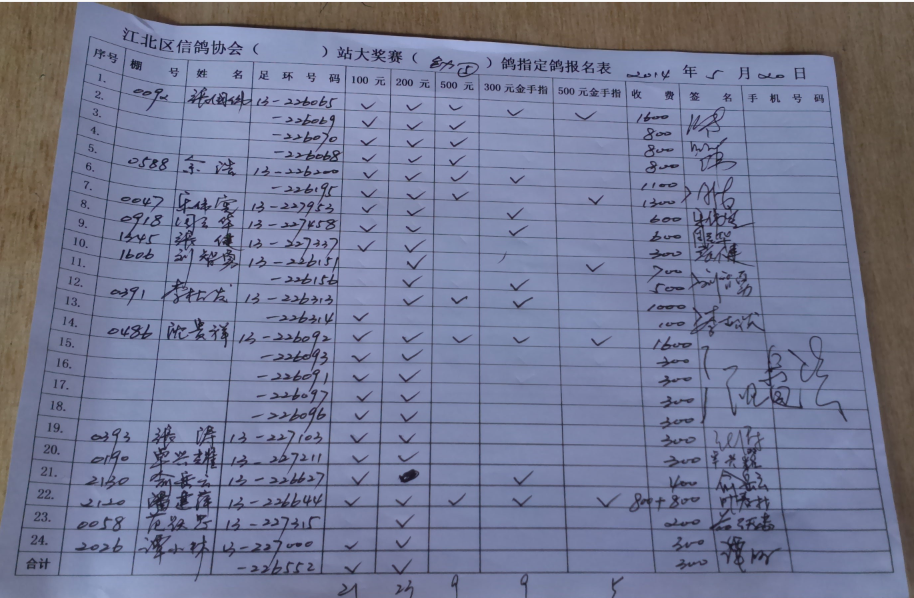 江北区信鸽协会（ ）站大奖赛（ ⑤）鸽指定鸽报名表 2014 年 5 月 20 日
序号 棚 号 姓 名 足 环 号 码 100 元 200 元 500 元 300 元金手指 500 元金手指 收 费 签 名 手 机 号 码
1.
2. 0092 13-226065 ✓ ✓ ✓ ✓ ✓ 1600
3. -226069 ✓ ✓ ✓ 800
4. -226070 ✓ ✓ ✓ 800
5. -226068 ✓ ✓ ✓ 800
6. 0588 余浩 13-226200 ✓ ✓ ✓ ✓ 1100
7. -226195 ✓ ✓ ✓ ✓ 1300
8. 0047 13-227953 ✓ ✓ ✓ 600
9. 0918 13-227458 ✓ ✓ ✓ 600
10. 1345 张健 13-227337 ✓ ✓ 300 张健
11. 1606 刘智勇 13-226151 ✓ ✓ 700 刘智勇
12. -226156 ✓ ✓ 500
13. 0391 13-226313 ✓ ✓ ✓ ✓ 1000
14. -226314 ✓ 100
15. 0486 沈贵祥 13-226092 ✓ ✓ ✓ ✓ ✓ 1600
16. -226093 ✓ ✓ 300
17. -226091 ✓ ✓ 300
18. -226097 ✓ ✓ 300
-226096 ✓ ✓ 300
19. 0393 张涛 13-227103 ✓ ✓ 300
20. 0190 单兴雄 13-227211 ✓ ✓ 300
21. 2130 俞岳云 13-226627 ✓ ✓ 400 俞岳云
22. 2120 13-226644 ✓ ✓ ✓ ✓ ✓ 800+800
23. 0058 13-227315 ✓ 200
24. 2026 谭小林 13-227000 ✓ ✓ 300
合计 -226552 ✓ ✓ 300
21 23 9 9 5